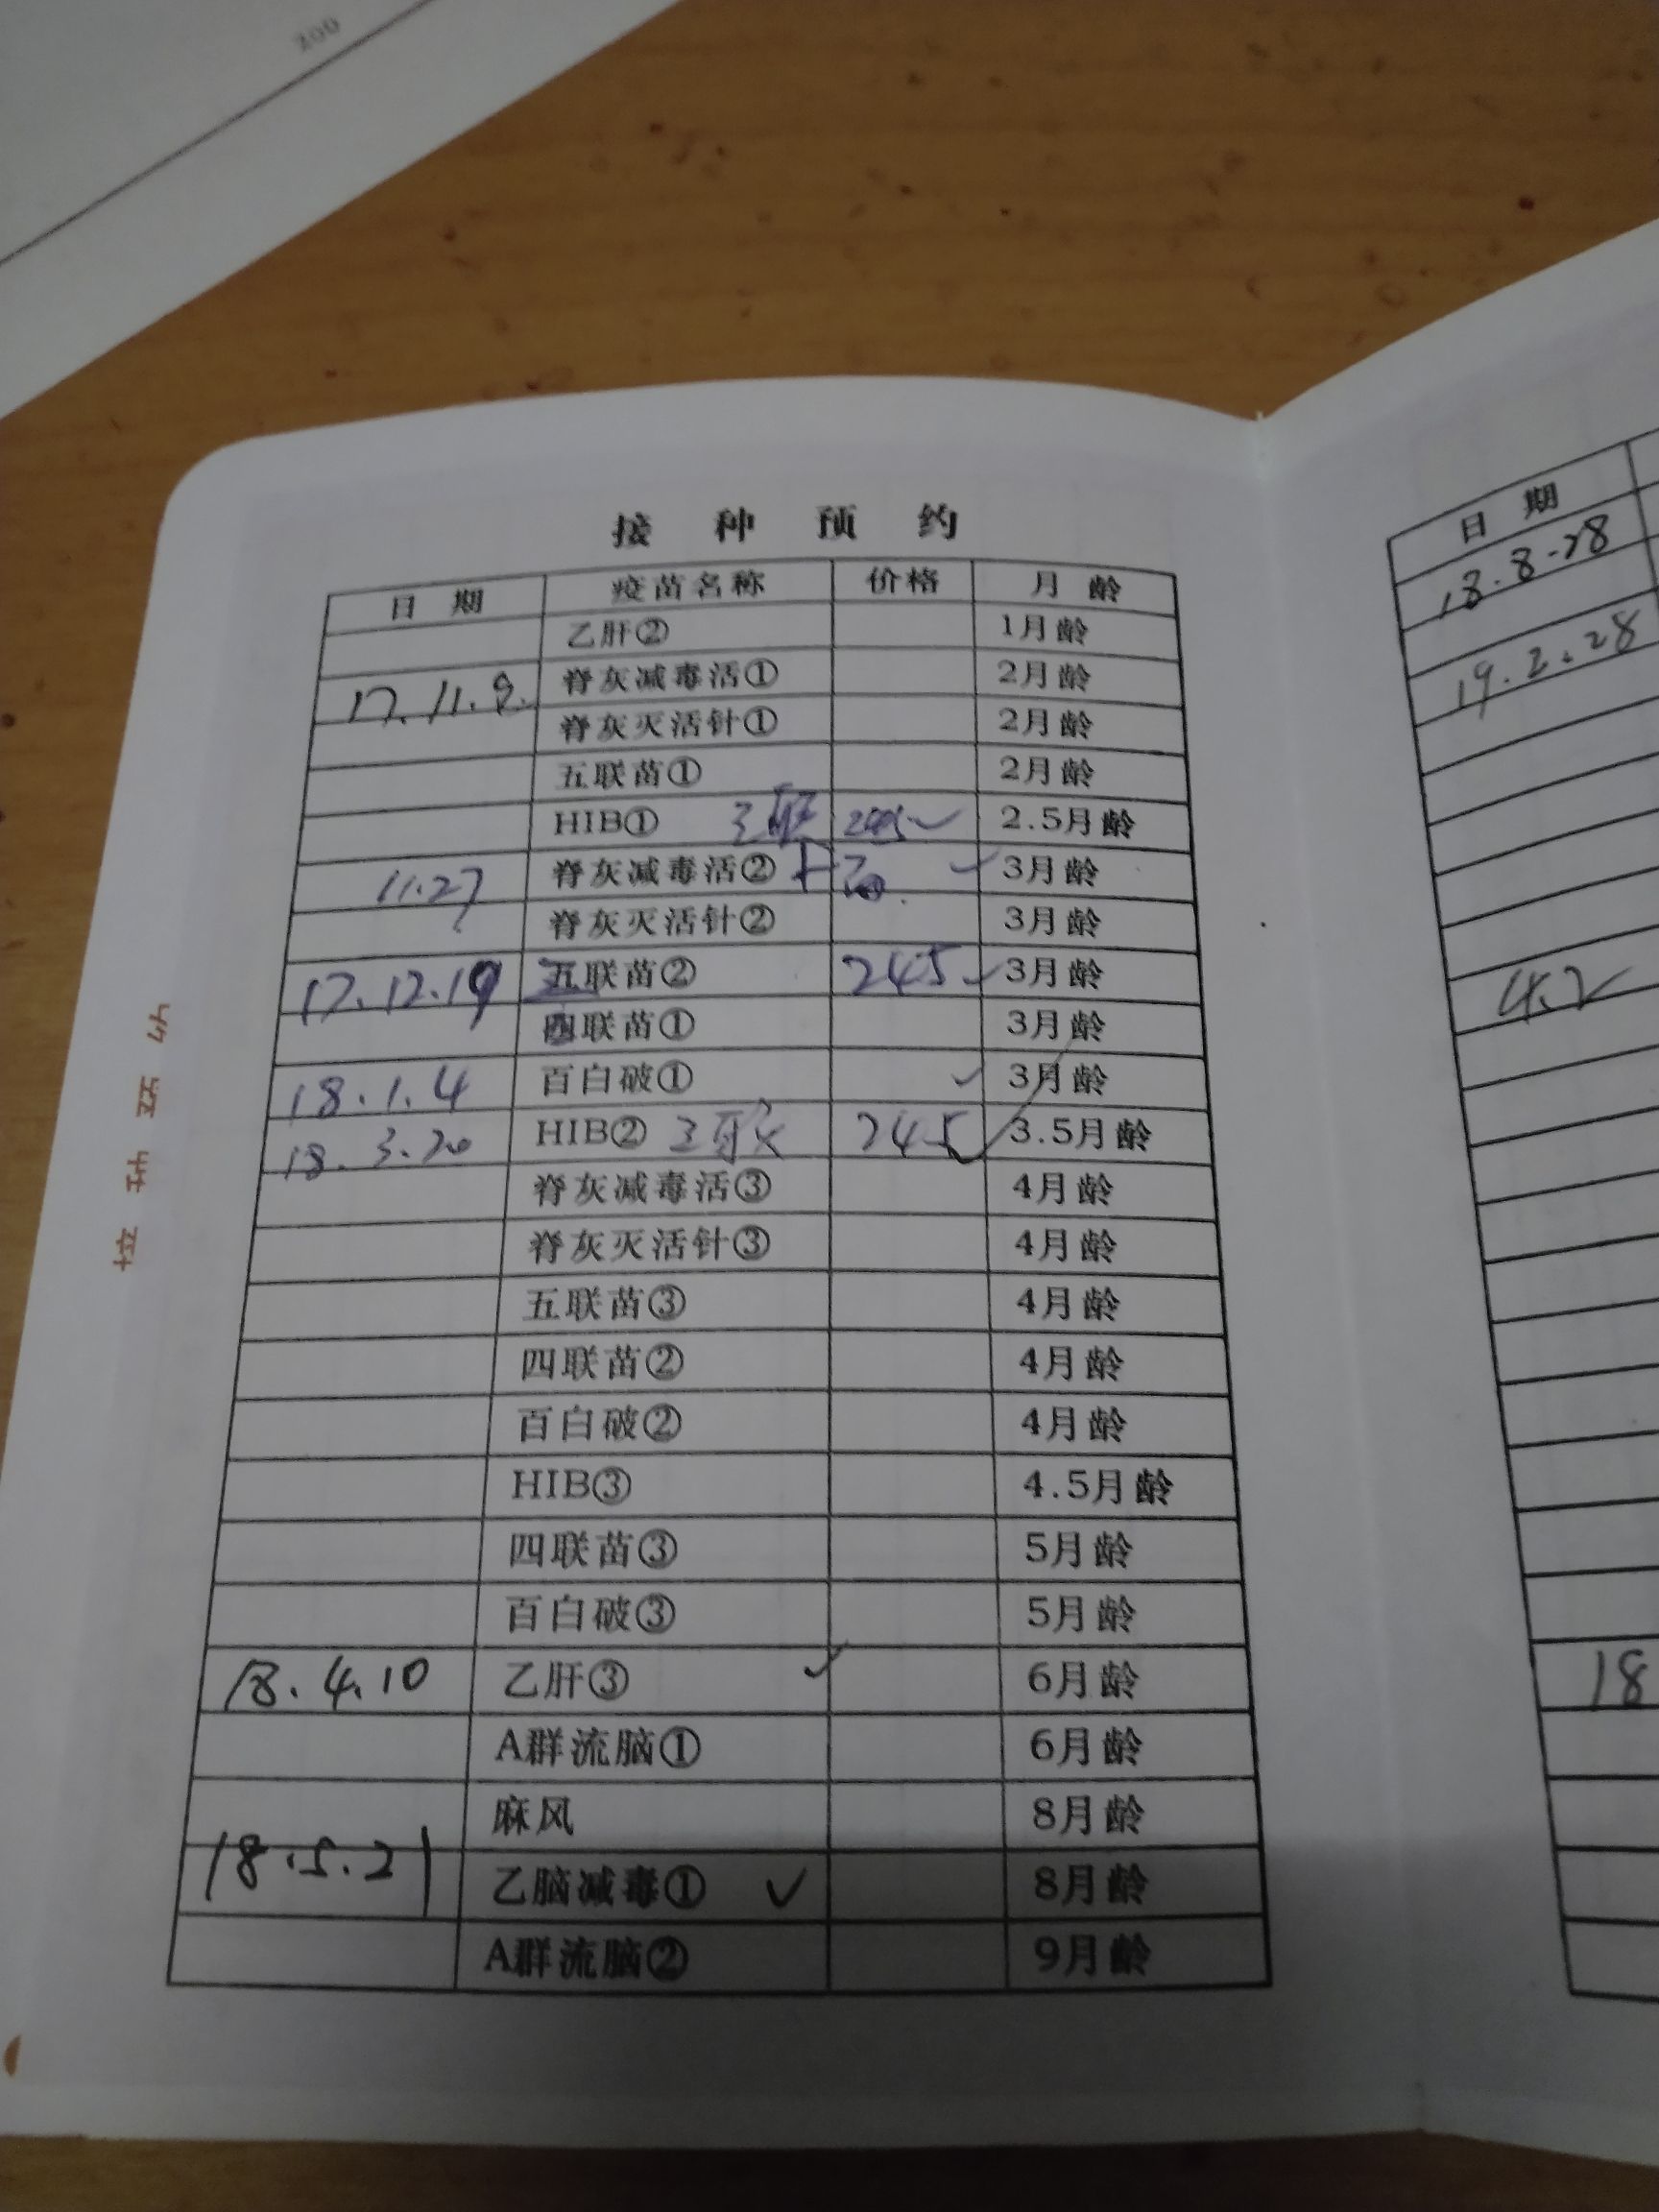 200
接 种 预 约
日 期 疫苗名称 价格 月 龄
乙肝② 1月龄
17.11.9. 脊灰减毒活① 2月龄
脊灰灭活针① 2月龄
五联苗① 2月龄
HIB① 三联 2.5月龄
11.27 脊灰减毒活② 3月龄
脊灰灭活针② 3月龄
17.12.19 五联苗② 245 3月龄
四联苗① 3月龄
18.1.4 百白破① 3月龄
18.3.20 HIB② 三联 245 3.5月龄
脊灰减毒活③ 4月龄
脊灰灭活针③ 4月龄
五联苗③ 4月龄
四联苗② 4月龄
百白破② 4月龄
HIB③ 4.5月龄
四联苗③ 5月龄
百白破③ 5月龄
18.4.10 乙肝③ ✓ 6月龄
A群流脑① 6月龄
麻风 8月龄
18.5.21 乙脑减毒① ✓ 8月龄
A群流脑② 9月龄
日 期
18.8.28
19.2.28
4.2
18